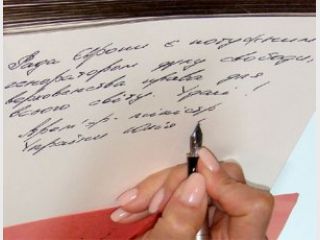 Рада Європи є потужним
генератором духу свободи,
верховенства права для
всього світу. Ураа!
Прем'єр-міністр
України Юлія